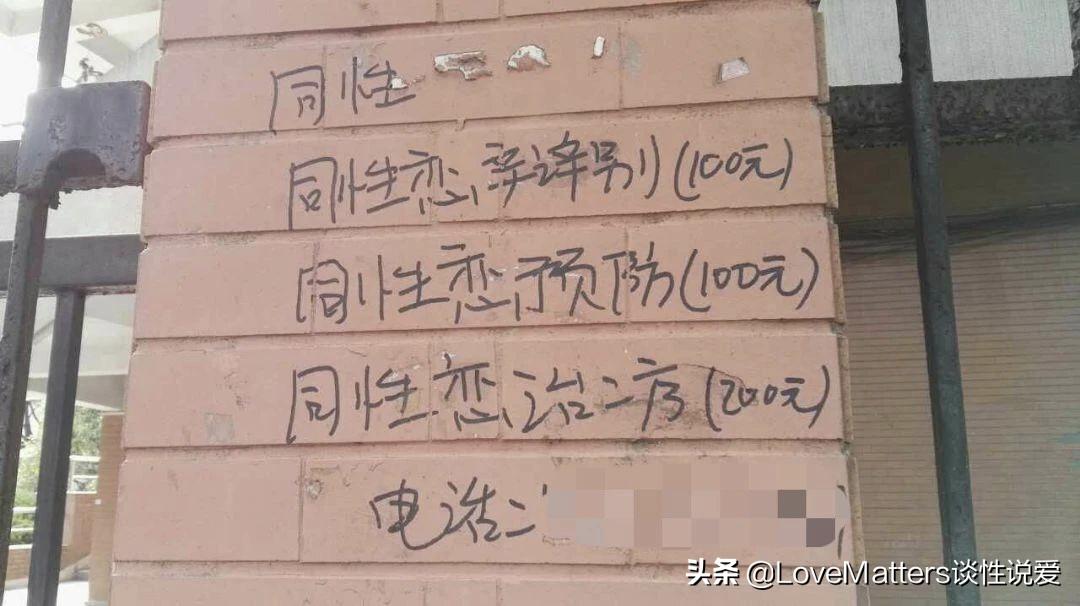 同性
同性恋辩别(100元)
同性恋预防(100元)
同性恋治疗(200元)
电话:
头条 @LoveMatters谈性说爱